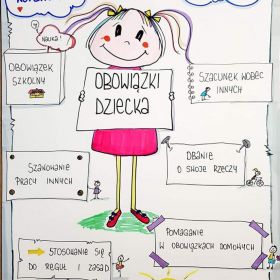 NAUKA!
OBOWIĄZEK
SZKOLNY
OBOWIĄZKI
DZIECKA
SZACUNEK WOBEC
INNYCH
SZANOWANIE
PRACY INNYCH
DBANIE
O SWOJE RZECZY
STOSOWANIE SIĘ
DO REGUŁ I ZASAD
POMAGANIE
W OBOWIĄZKACH DOMOWYCH